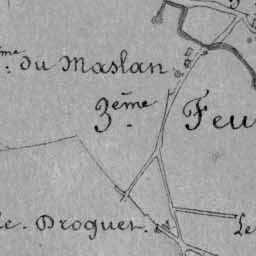 ème. du Maslan
3ème Feu
le. Droguet. Le